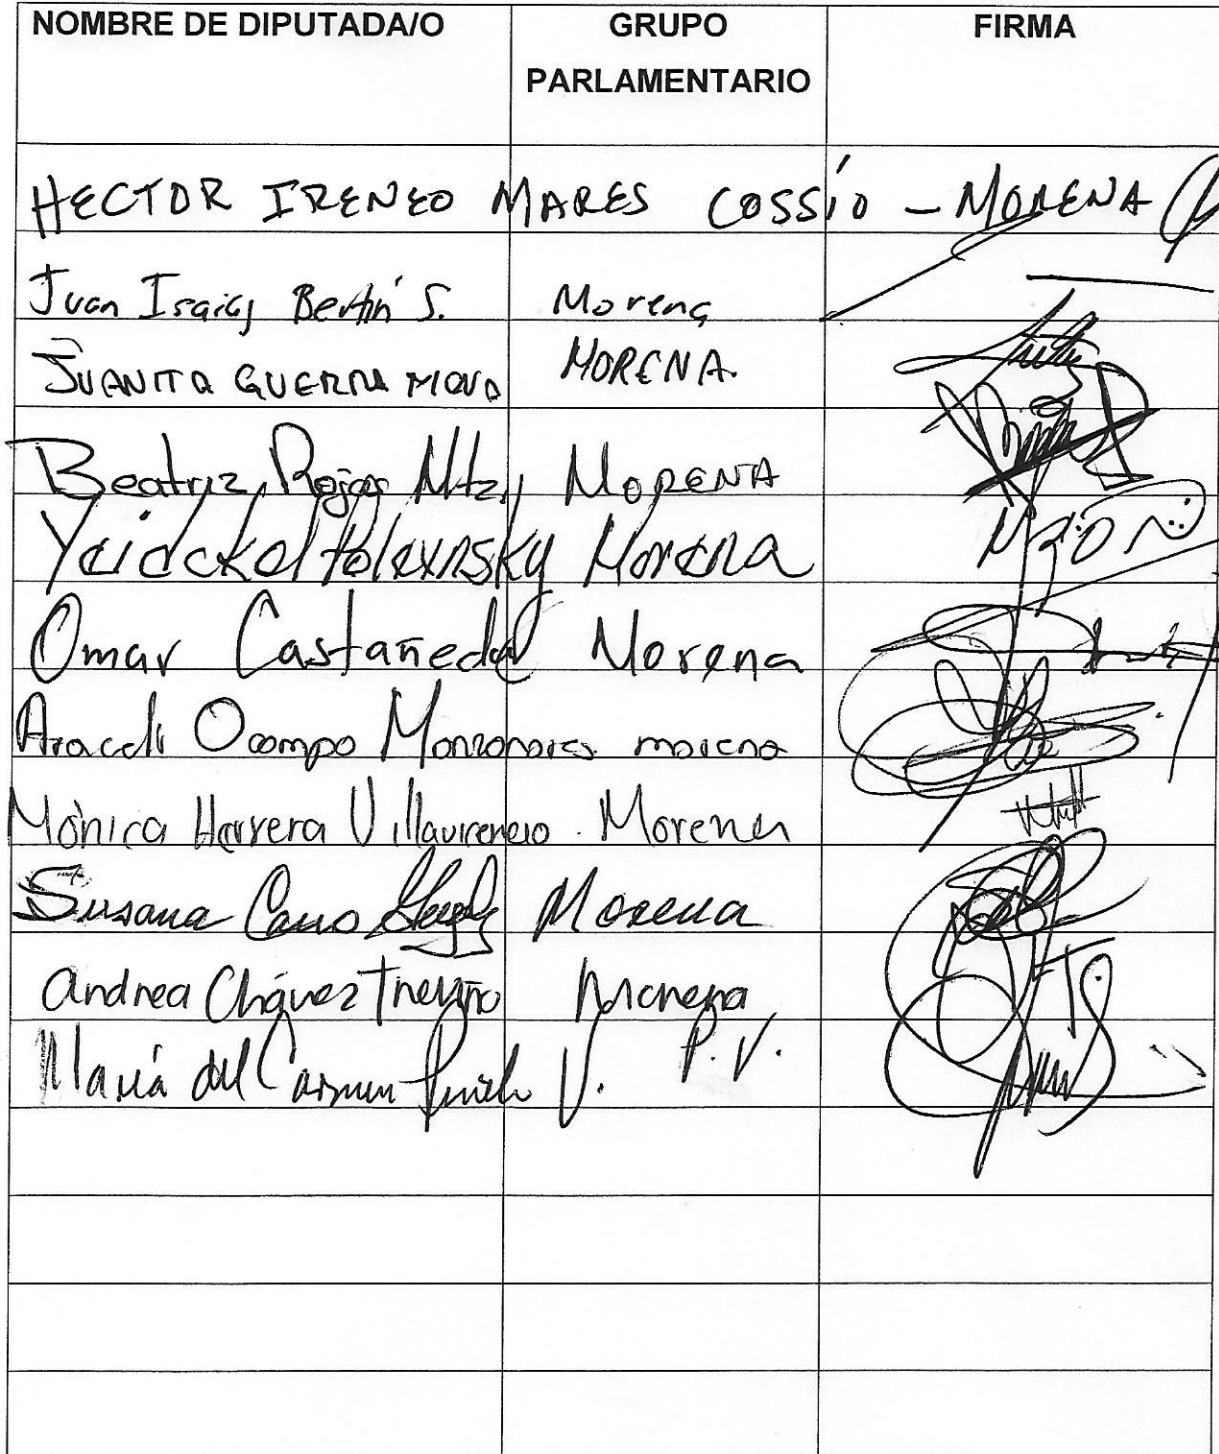 NOMBRE DE DIPUTADA/O GRUPO FIRMA
PARLAMENTARIO
HECTOR IRENEO MARES COSSÍO - MORENA
Juan Isaias Bertín S. Morena
JUANITA GUERRA MENA MORENA.
Beatriz Rojas Mtz. MORENA
Yeidckol Polevnsky Morena
Omar Castañeda Morena
Araceli Ocampo Manzanares morena
Mónica Herrera Villavicencio. Morena
Susana Cano Morena
Andrea Chávez Treviño Morena
María del Carmen Pinete V. P.V.